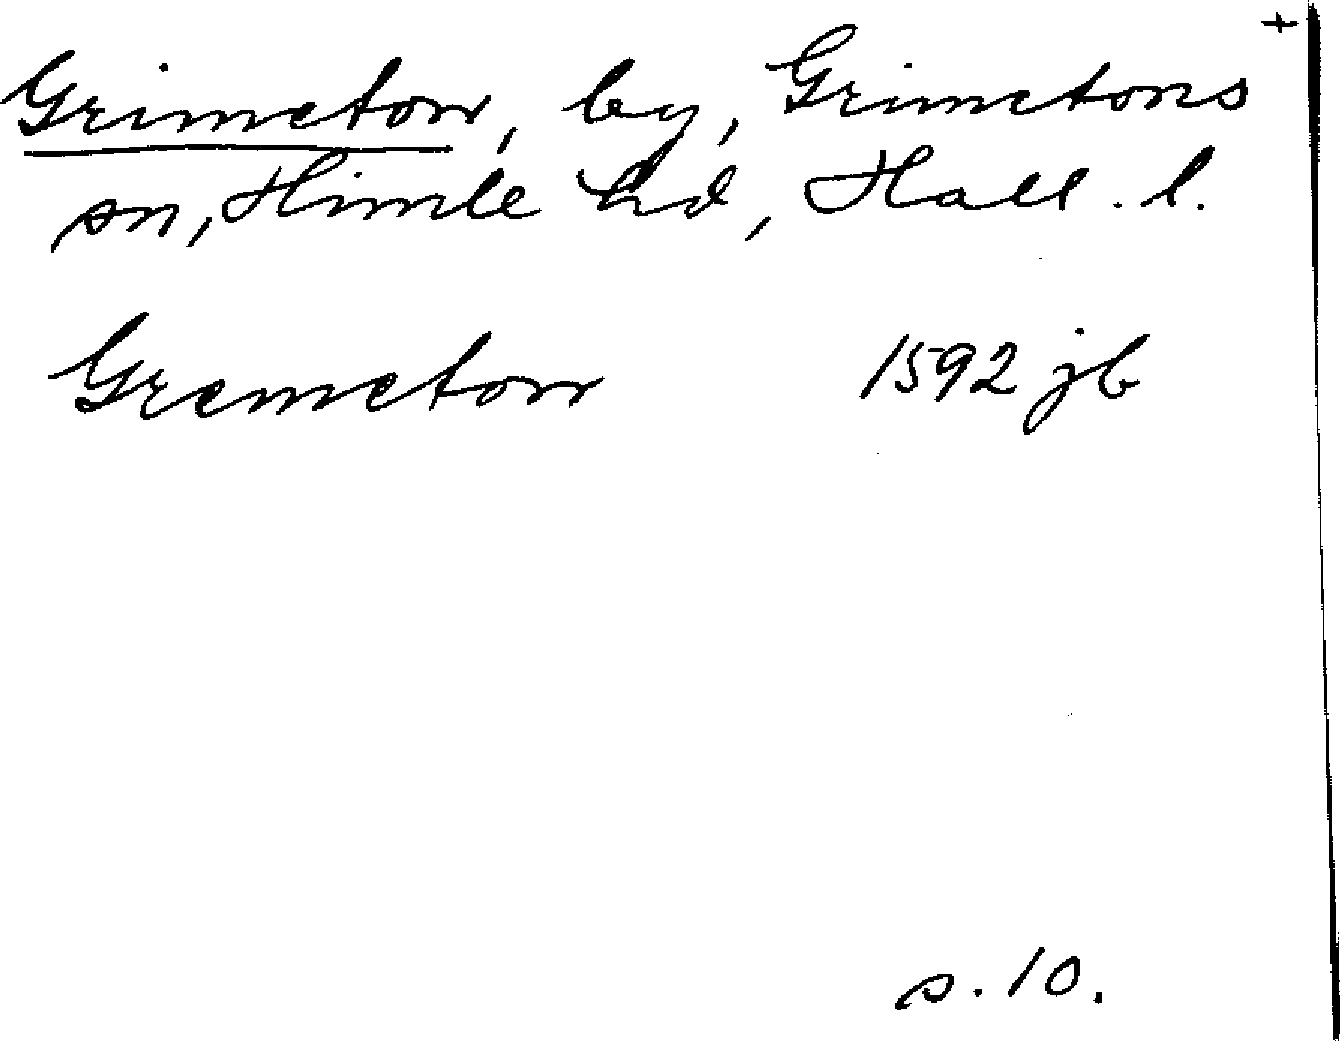 +
Grimeton, by, Grimetons
sn, Himle hd, Hall. l.
Gremeton 1592 jb
s. 10.